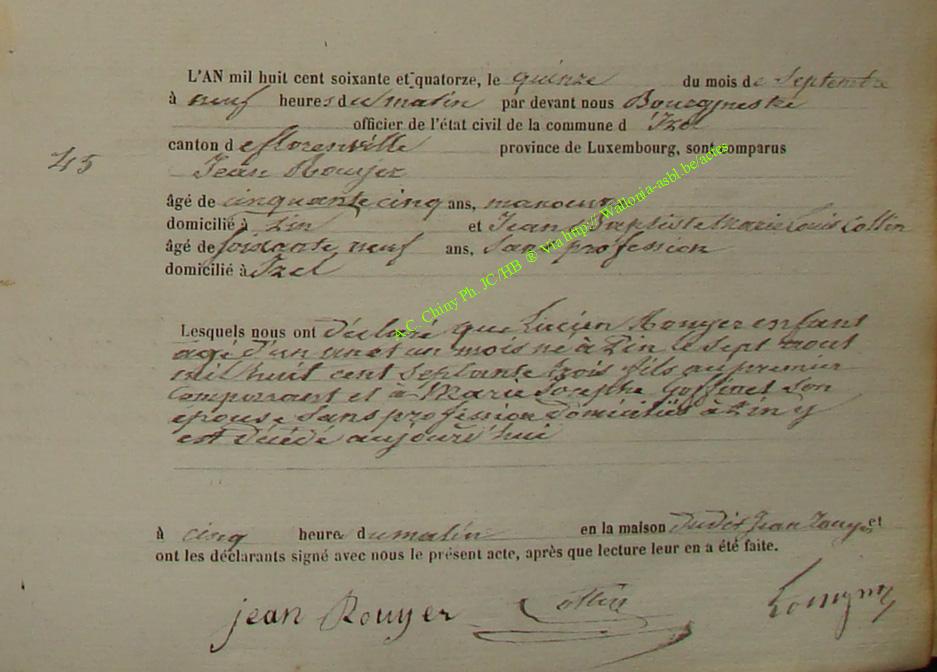 L'AN mil huit cent soixante et quatorze, le quinze du mois de Septembre
à neuf heures du matin par devant nous
officier de l'état civil de la commune d'Izel
canton de florenville province de Luxembourg, sont comparus
45
Jean Rouyer
âgé de cinquante cinq ans, manoeuvre
domicilié à Pin et Jean Baptiste Marie Louis Collin
âgé de soixante neuf ans, Sans profession
domicilié à Izel
Lesquels nous ont déclaré que Lucien Rouyer enfant
agé d'un an et un mois né à Pin le sept aout
mil huit cent septante trois fils au premier
comparant et à Marie Josephe Goffinet son
épouse sans profession domiciliés à Pin y
est décédé aujourd'hui
à cinq heures du matin en la maison dudit Jean Rouyer et
ont les déclarants signé avec nous le présent acte, après que lecture leur en a été faite.
jean Rouyer Collin
A.C. Chiny Ph. JC/HB ® Via http://Wallonia-asbl.be/actes